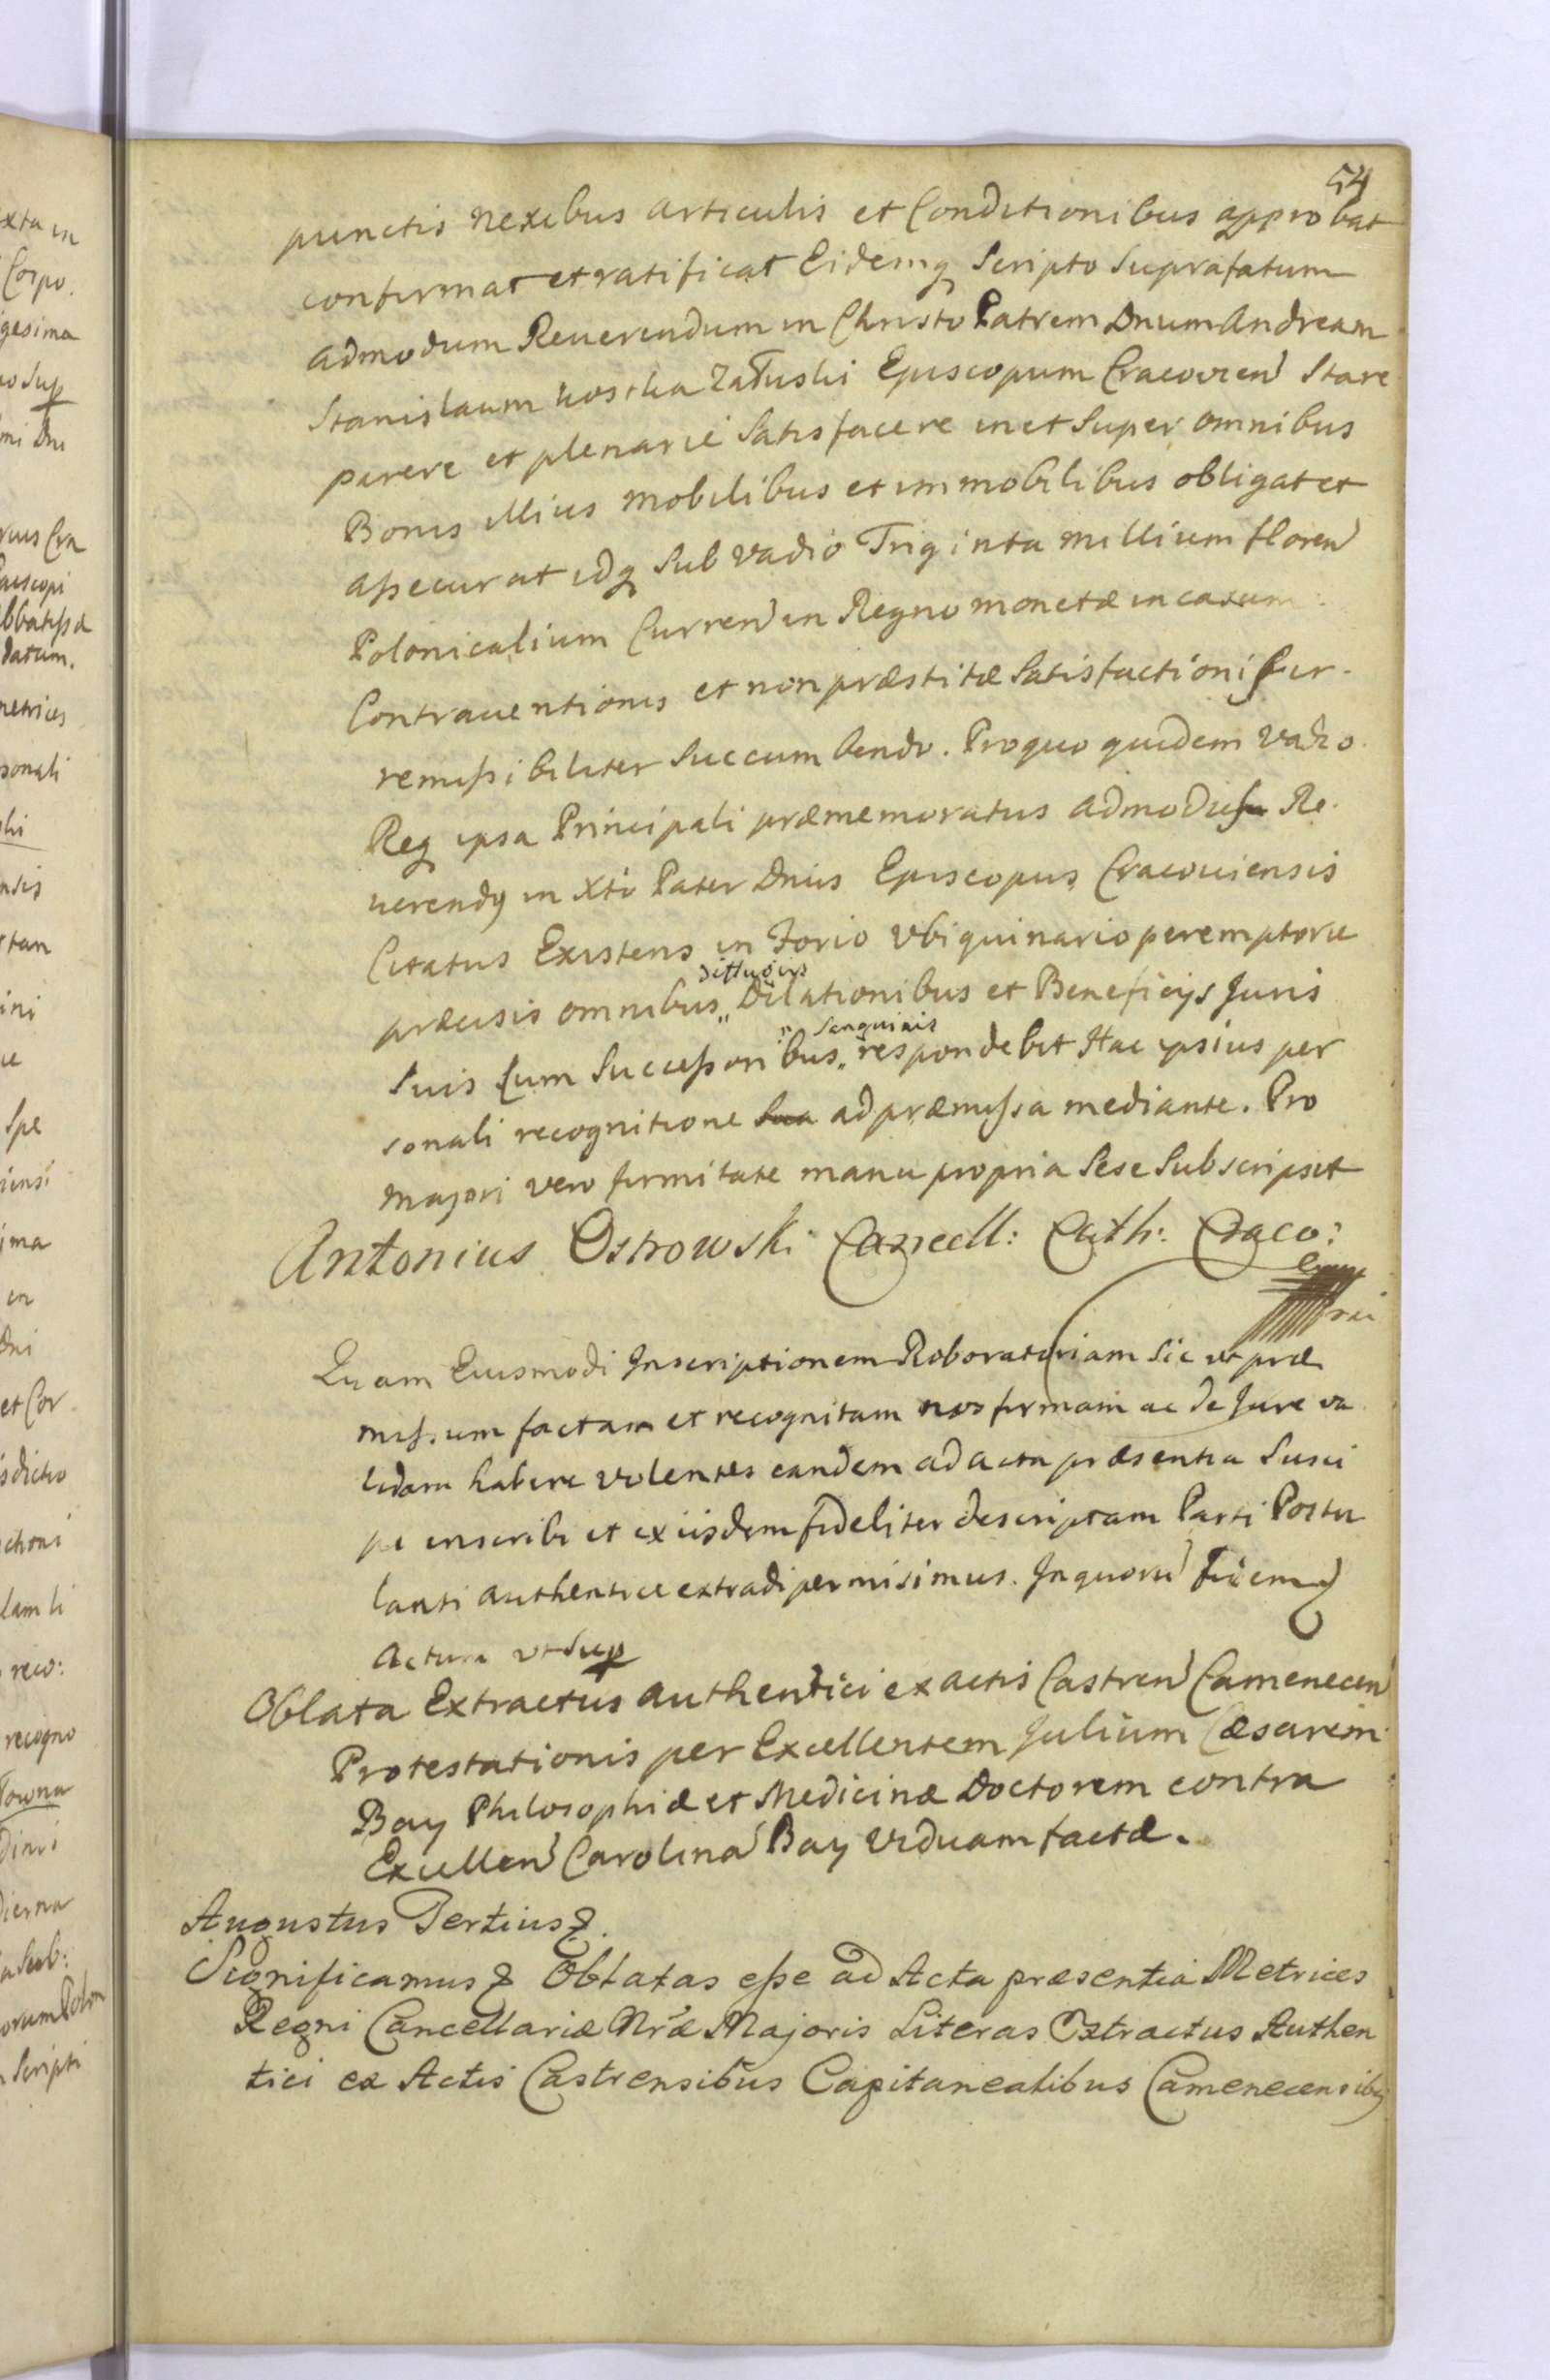 54
punctis nexibus articulis et Conditionibus approbat
confirmat et ratificat Eidemq Scripto Suprafatum
admodum Reuerendum in Christo Patrem Dnum Andream
Stanislaum Kostka Załuski Episcopum Cracovien Stare
parere et plenarie Satisfacere in et Super omnibus
Bonis illius mobilibus et immobilibus obligat et
assecurat idq Sub vadio Triginta millium floren
Polonicalium Curren in Regno monetæ in casum
Contrauentionis et non præstitæ Satisfactionis Jr-
remissibiliter Succumbendo. Pro quo quidem vadio
Req ipsa Principali præmemoratus admodum Re-
uerendq in Xto Pater Dnus Episcopus Cracouiensis
Citatus Existens in Forio Ubiquinario peremptorie
diffugiis
præcisis omnibus „ Dilationibus et Beneficijs Juris
„ Sanguinis
Suis Cum Successoribus „ respondebit Hac ipsius per
sonali recognitione Sua ad præmissa mediante. Pro
majori vero firmitate manu propria Sese Subscripsit
Antonius Ostrowski Cancell: Cath: Craco:
Quam Eiusmodi Inscriptionem Roboratoriam Sic ut præ
missum factam et recognitam nos firmam ac de Jure va
lidam habere volentes eandem ad acta præsentia Susci
pi inscribi et ex iisdem fideliter descriptam Parti Postu
lanti authentice extradi permisimus. In quoru Fidem
Actum ut Sup
Oblata Extractus authentici ex actis Castren Camenecen
Protestationis per Excellentem Julium Cæsarem
Bay Philosophiæ et Medicinæ Doctorem contra
Excellen Carolina Bay viduam factæ.
Augustus Tertius &.
Significamus & Oblatas esse ad Acta præsentia Metrices
Regni Cancellariæ Nræ Majoris Literas Extractus Authen
tici ex Actis Castrensibus Capitanealibus Camenecensibq